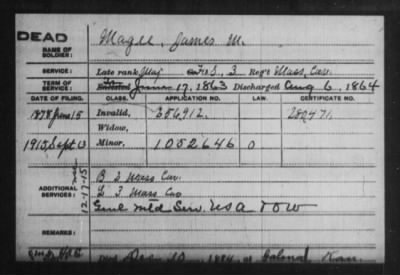 DEAD
NAME OF SOLDIER: Magee, James M.
SERVICE: Late rank, Maj F&S, 3 Reg't Mass. Cav.
TERM OF SERVICE: Enlisted June 17, 1863 Discharged Aug 6, 1864
DATE OF FILING. CLASS. APPLICATION NO. LAW. CERTIFICATE NO.
1878 June 15 Invalid, 256912. 280471.
Widow,
1915 Sept 13 Minor, 1052646 0
ADDITIONAL SERVICES: B 2 Mass Cav.
12-17-15 L 3 Mass Cav
Genl Mtd Serv. USA TOW
REMARKS:
Dec 10, 1884, at Kan.